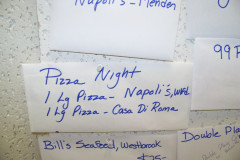 Napoli's - Menden
99
Pizza Night
1 Lg Pizza - Napoli's,
1 Lg Pizza - Casa Di Roma
Double
Bill's Seafood, Westbrook